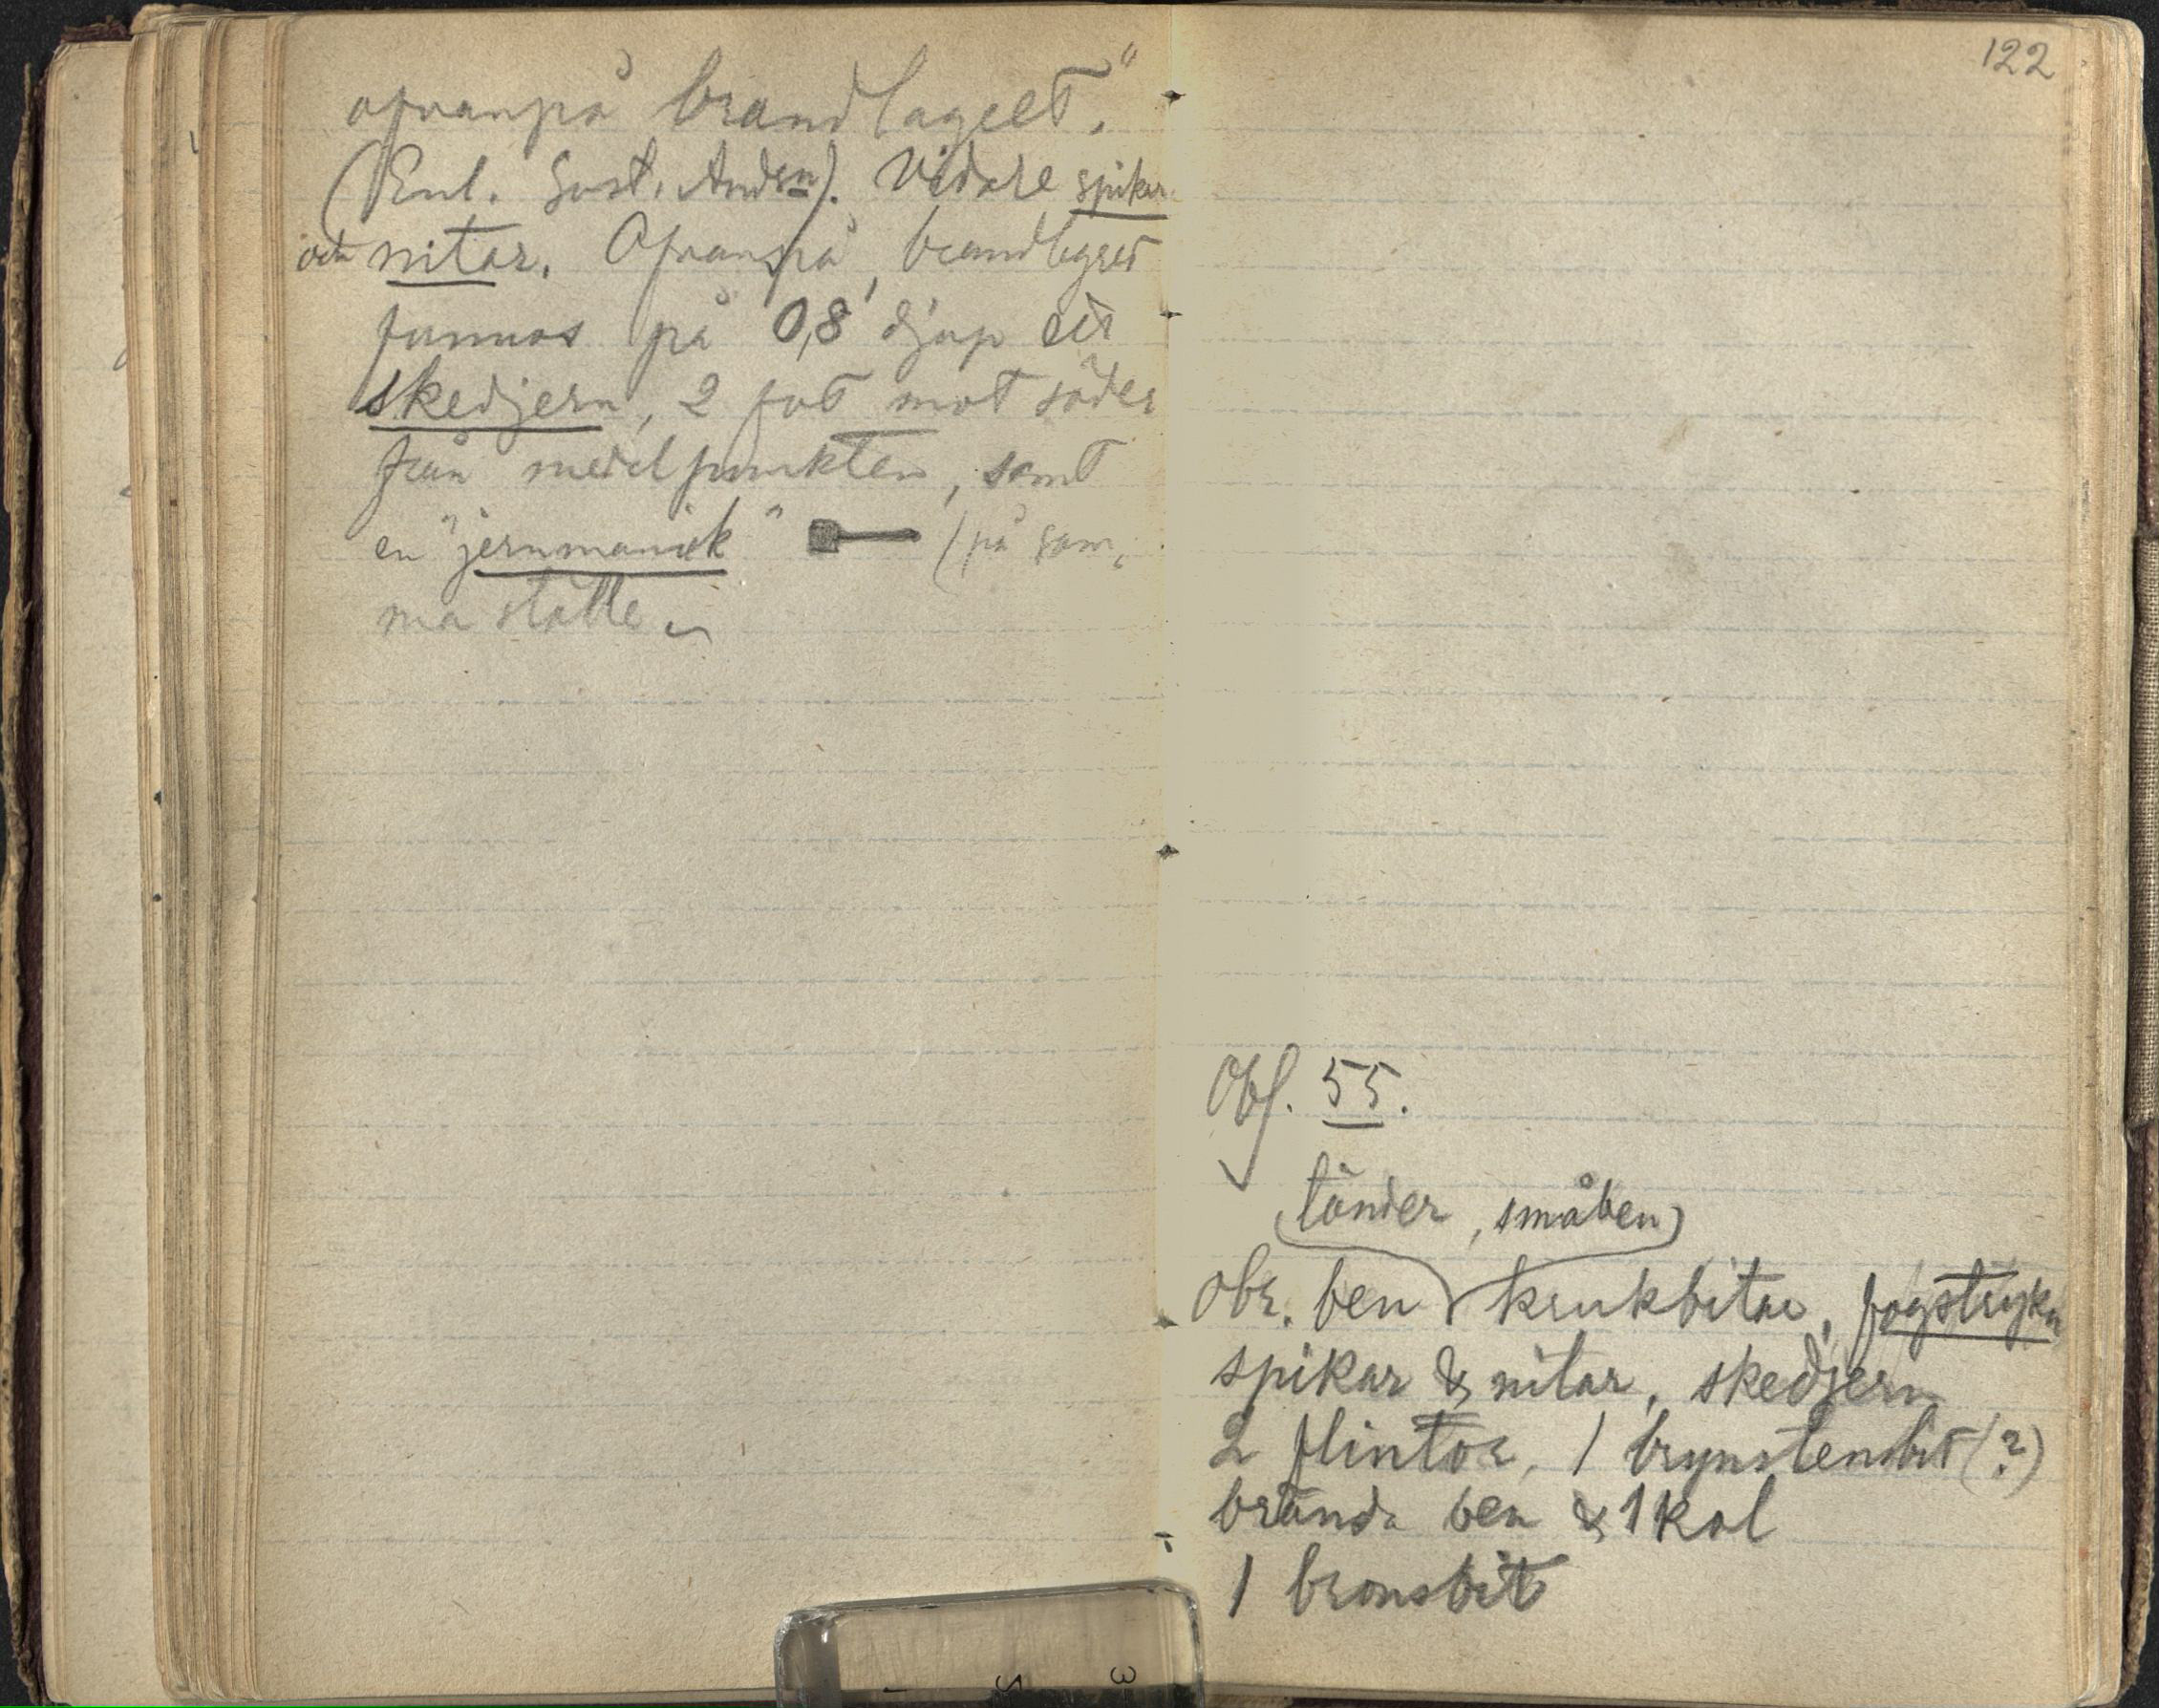 ofvanpå brandlagret."
(Enl. Gust. Andsn). Vidare spikar
och nitar. Ofvanpå brandlagret
funnos på 0,8' djup ett
skedjern, 2 fot mot söder
från medelpunkten, samt
en "jernmanick" (på sam-
ma ställe
122
Obf. 55.
(tänder, småben)
Obr. ben krukbitar, fogstycken
spikar & nitar, skedjern
2 flintor, 1 brynstensbit (?)
brända ben & 1 kol
1 bronsbit